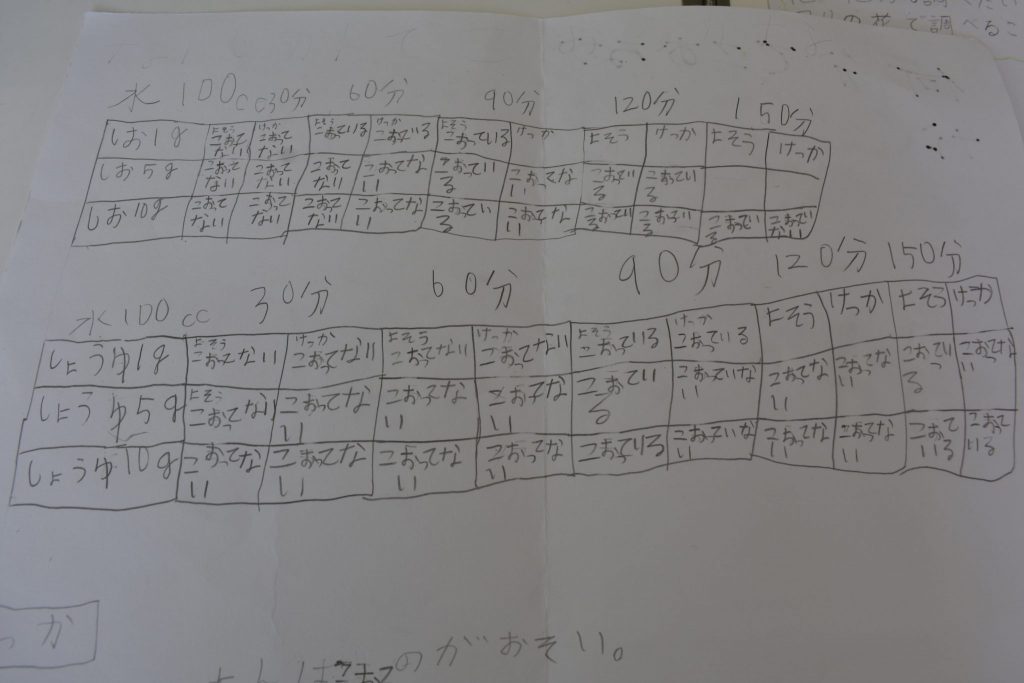 の花で調べるこ
水100cc 30分 60分 90分 120分 150分
しお1g よそう こおってない けっか こおってない よそう こおっている けっか こおっている よそう こおっている けっか よそう けっか よそう けっか
しお5g こおってない こおってない こおってない こおってない こおっている こおってない こおっている こおっている
しお10g こおってない こおってない こおってない こおってない こおっている こおってない こおってい る こおっている こおっている こおってない
水100cc 30分 60分 90分 120分 150分
しょうゆ1g よそう こおってない けっか こおってない よそう こおってない けっか こおってない よそう こおっている けっか こおっている よそう けっか よそう けっか
しょうゆ5g よそう こおってない こおってない こおってない こおってない こおっている こおっていない こおってない こおってない こおっている こおってない
しょうゆ10g こおってない こおってない こおってない こおってない こおっている こおっていない こおってない こおってない こおっている こおっている
っか
のがおそい。